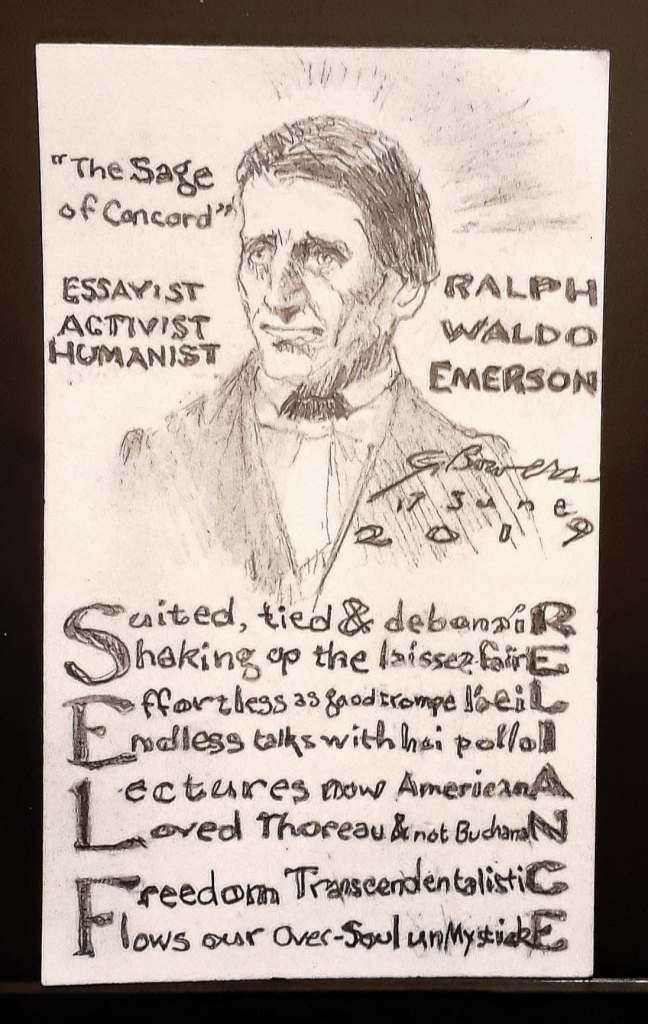 "The Sage
of Concord"
ESSAYIST
ACTIVIST
HUMANIST
RALPH
WALDO
EMERSON
G. Bowers
17 June
2019
Suited, tied & debonaiR
Shaking up the laissez-fairE
Effortless as good trompe l'oeiL
Endless talks with hoi polloI
Lectures now AmericanA
Loved Thoreau & not BuchanaN
Freedom TranscendentalistiC
Flows our Over-Soul unMystickE